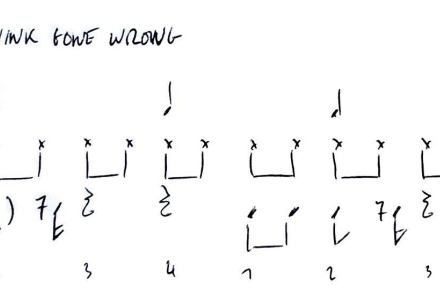 INK GONE WRONG
3 4 1 2 3